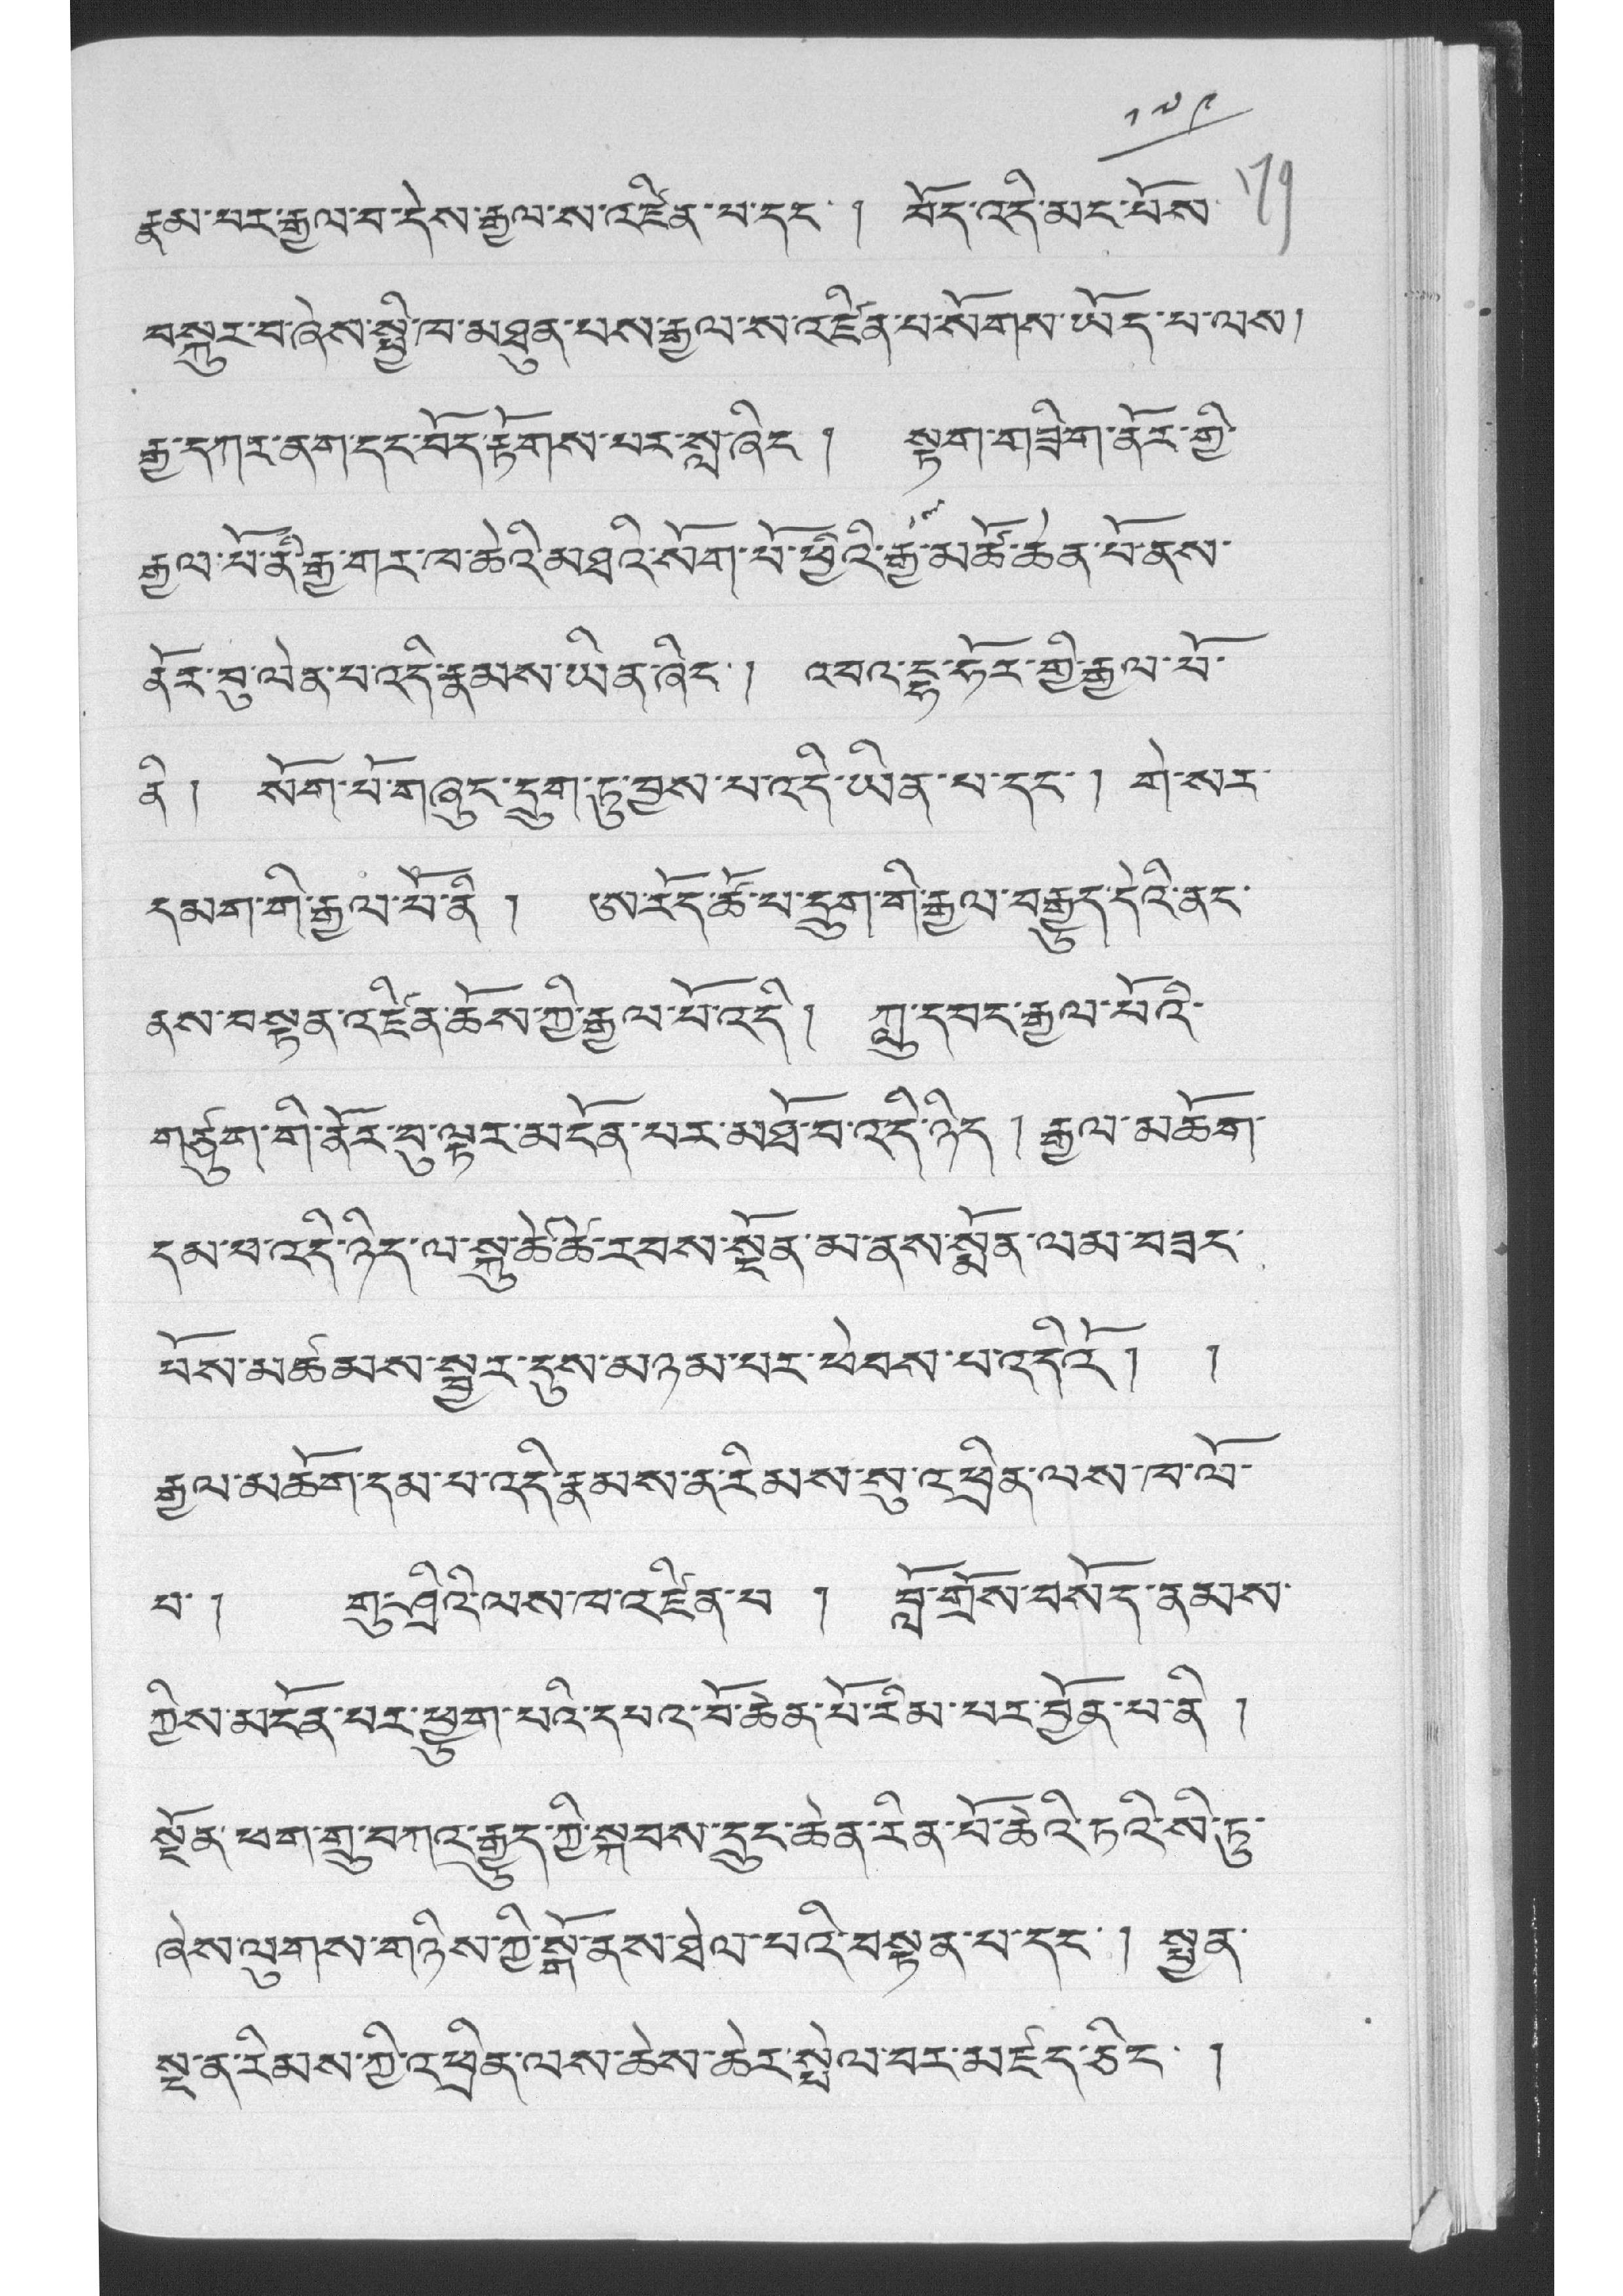 ༡༧༩
179
རྣམ་པར་རྒྱལ་བ་དེས་རྒྱལ་ས་འཛིན་པ་དང་། བོད་འདི་མང་པོས་
བསྐུར་བ་ཞེས་སྤྱི་ཁ་མཐུན་པས་རྒྱལ་ས་འཛིན་པ་སོགས་ཡོད་པ་ལས།
རྒྱ་དཀར་ནག་དང་བོད་རྟོགས་པར་སླ་ཞིང་། སྟག་གཟིག་ནོར་གྱི་
རྒྱལ་པོ་ནི་རྒྱ་གར་ཁ་ཆེའི་མཐའི་སོག་པོ་ཕྱིའི་རྒྱ་མཚོ་ཆེན་པོ་ནས་
ནོར་བུ་ལེན་པ་འདི་རྣམས་ཡིན་ཞིང་། འབའ་ཧོར་གྱི་རྒྱལ་པོ་
ནི། སོག་པོ་གཞུང་དྲུག་ཏུ་བྱས་པ་འདི་ཡིན་པ་དང་། གེ་སར་
དམག་གི་རྒྱལ་པོ་ནི། ཨ་རོད་ཚོ་པ་དྲུག་གི་རྒྱལ་བརྒྱུད་དེའི་ནང་
ནས་བསྟན་འཛིན་ཆོས་ཀྱི་རྒྱལ་པོ་འདི། ཀླུ་དབང་རྒྱལ་པོའི་
གཙུག་གི་ནོར་བུ་ལྟར་མངོན་པར་མཐོ་བ་འདི་ཉིད། རྒྱལ་མཆོག་
དམ་པ་འདི་ཉིད་ལ་སྐུ་ཚེ་ཚེ་རབས་སྔོན་མ་ནས་སྨོན་ལམ་བཟང་
པོས་མཚམས་སྦྱར་དུས་མཉམ་པར་ཕེབས་པ་འདིའོ། །
རྒྱལ་མཆོག་དམ་པ་འདི་རྣམས་ན་རིམས་སུ་འཕྲིན་ལས་ཁ་ལོ་
པ་། གུ་ཤྲཱིའི་ལས་ཁ་འཛིན་པ། བློ་གྲོས་བསོད་ནམས་
ཀྱིས་མངོན་པར་ཕྱུག་པའི་དཔའ་བོ་ཆེན་པོ་རིམ་པར་བྱོན་པ་ནི།
སྔོན་ཕག་གྲུ་བཀའ་རྒྱུད་ཀྱི་སྐབས་དྲུང་ཆེན་རིན་པོ་ཆེའི་ཏའི་སི་ཏུ་
ཞེས་ལུགས་གཉིས་ཀྱི་སྒོ་ནས་ཐེལ་པའི་བསྟན་པ་དང་། སྤྱན་
སྔ་ན་རིམས་ཀྱི་འཕྲིན་ལས་ཆེས་ཆེར་སྤེལ་བར་མཛད་ཅིང་།